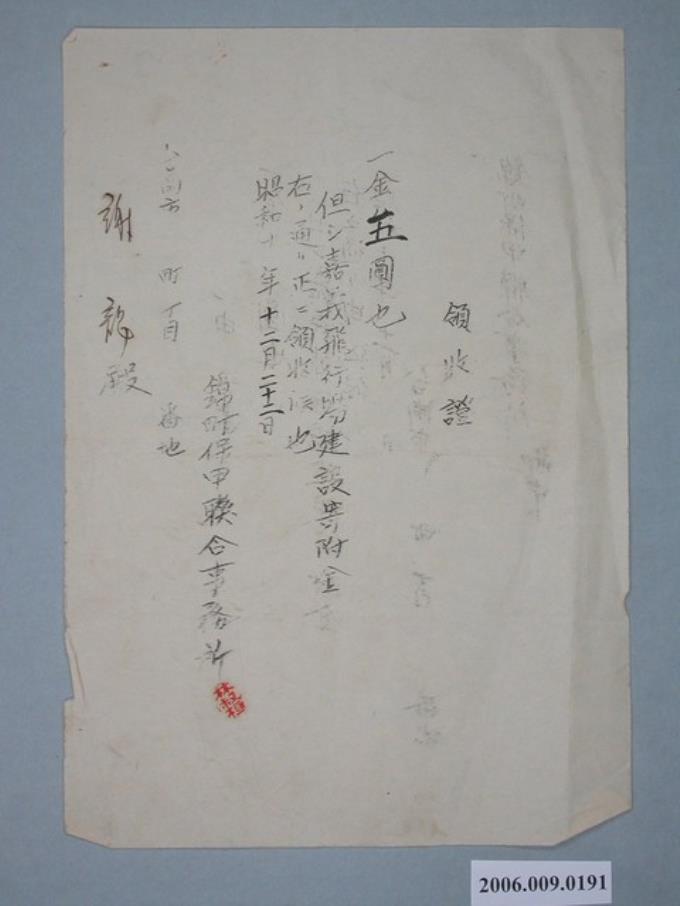 領收證
一金五圓也
但シ嘉義飛行場建設寄附金
右ノ通リ正ニ領收候也
昭和十 年十二月二十二日
錦町保甲聯合事務所
町 丁目 番地
謝 殿
2006.009.0191